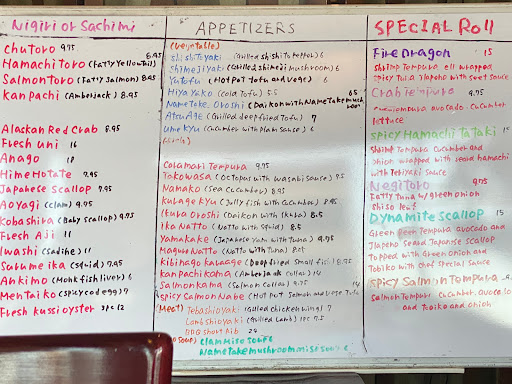 Nigiri or Sashimi
Chutoro 9.95
Hamachi Toro (Fatty Yellowtail) 8.95
Salmon toro (Fatty Salmon) 8.95
Kanpachi (Amberjack) 8.95
Alaskan Red Crab 8.95
Fresh uni 16
Anago 18
Hime Hotate 7.95
Japanese Scallop 7.95
Aoyagi (clam) 9.95
Kobashira (Baby scallop) 9.95
Fresh Aji 11
Iwashi (Sadine) 11
Surume ika (squid) 7.95
Ankimo (Monkfish liver) 6
Mentaiko (spicy cod egg) 7
Fresh kussi oyster 3pc 12
APPETIZERS
(Vegetable)
Shishito yaki (Grilled shishito Pepper) 6
Shimeji yaki (Grilled shimeji mushroom) 6
Yutofu (Hot Pot Tofu and Vege) 6
Hiya yako (Cold Tofu) 5.5
Name Take Oroshi (Daikon with Name Take mushroom) 6.5
Atsu Age (Grilled deep fried Tofu) 7
Ume kyu (Cucumber with plum sauce) 6
Calamari Tempura 9.95
Takowasa (Octopus with wasabi sauce) 9.5
Namako (Sea Cucumber) 8.95
Kurage kyu (Jelly fish with cucumber) 8.95
Ikura Oroshi (Daikon with ikura) 8.5
Ika Natto (Natto with squid) 8.5
Yamakake (Japanese Yam with Tuna) 9.95
Maguro Natto (Natto with Tuna)
Kibinago karaage (Deep fried small fish) 8.95
Kanpachi kama (Amberjack collar) 14
Salmon kama (Salmon Collar) 9.95
Spicy Salmon Nabe (Hot Pot Salmon and Vege Tofu 14
(Meat) Tebashioyaki (Grilled Chicken wing) 7
Lamb shioyaki (Grilled Lamb) 1pc 7.5
BBQ Short Rib 24
(Soup) Clam miso Soup 6
Name Take mushroom miso soup 6
SPECIAL Roll
Fire Dragon 15
Shrimp Tempura eel wrapped
Spicy Tuna Jlapeno with sweet sauce
Crab Tempura 9.95
avocado cucumber
lettuce
Spicy Hamachi Tataki 15
Shrimp Tempura cucumber and
onion wrapped with seared hamachi
with Teriyaki sauce
Negitoro 9.95
Fatty Tuna w/ green onion
Shiso leaf
Dynamite Scallop 15
Green Been Tempura avocado and
Jlapeno seared Japanese scallop
Topped with Green Onion and
Tobiko with chef Special Sauce
Spicy Salmon Tempura
Salmon Tempura cucumber avocado
and Tobiko and onion